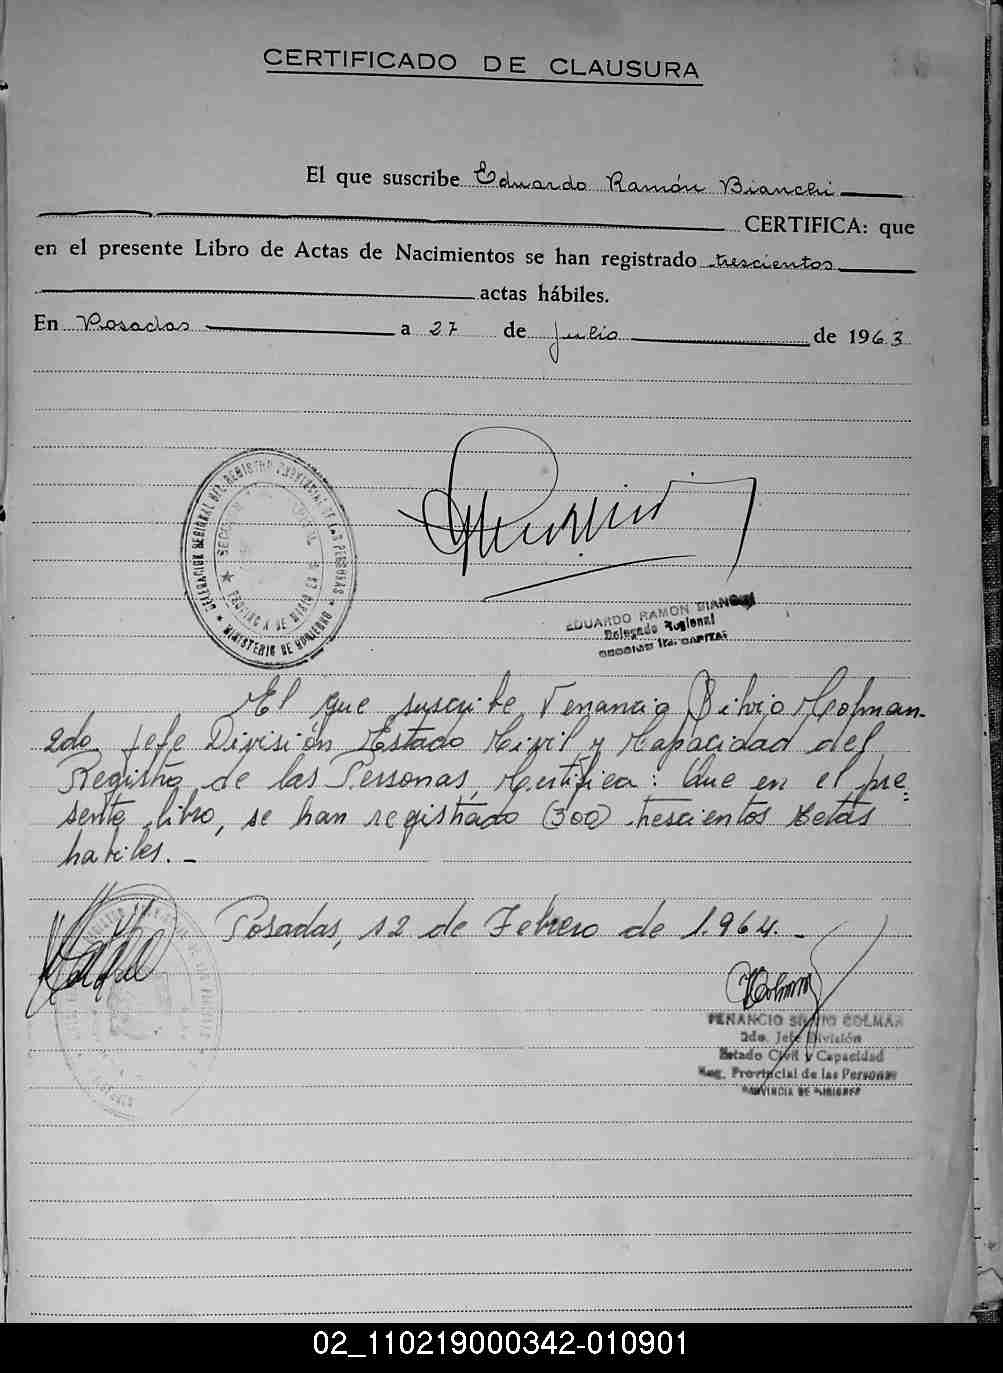 CERTIFICADO DE CLAUSURA
El que suscribe Eduardo Ramón Bianchi
CERTIFICA: que
en el presente Libro de Actas de Nacimientos se han registrado trescientos
actas hábiles.
En Posadas a 27 de Julio de 1963
DELEGACION REGIONAL DEL REGISTRO PROVINCIAL DE LAS PERSONAS
SECCION
PROVINCIA DE MISIONES
MINISTERIO DE GOBIERNO
EDUARDO RAMON BIANCHI
Delegado Regional
SECCION 1ra. CAPITAL
El que suscribe Venancio Silvio Colman.
2do. Jefe División Estado Civil y Capacidad del
Registro de las Personas, Certifica: Que en el pre=
sente libro, se han registrado (300) trescientos actas
habiles.-
Posadas, 12 de Febrero de 1.964.-
VENANCIO SILVIO COLMAN
2do. Jefe División
Estado Civil y Capacidad
Reg. Provincial de las Personas
PROVINCIA DE MISIONES
02_110219000342-010901